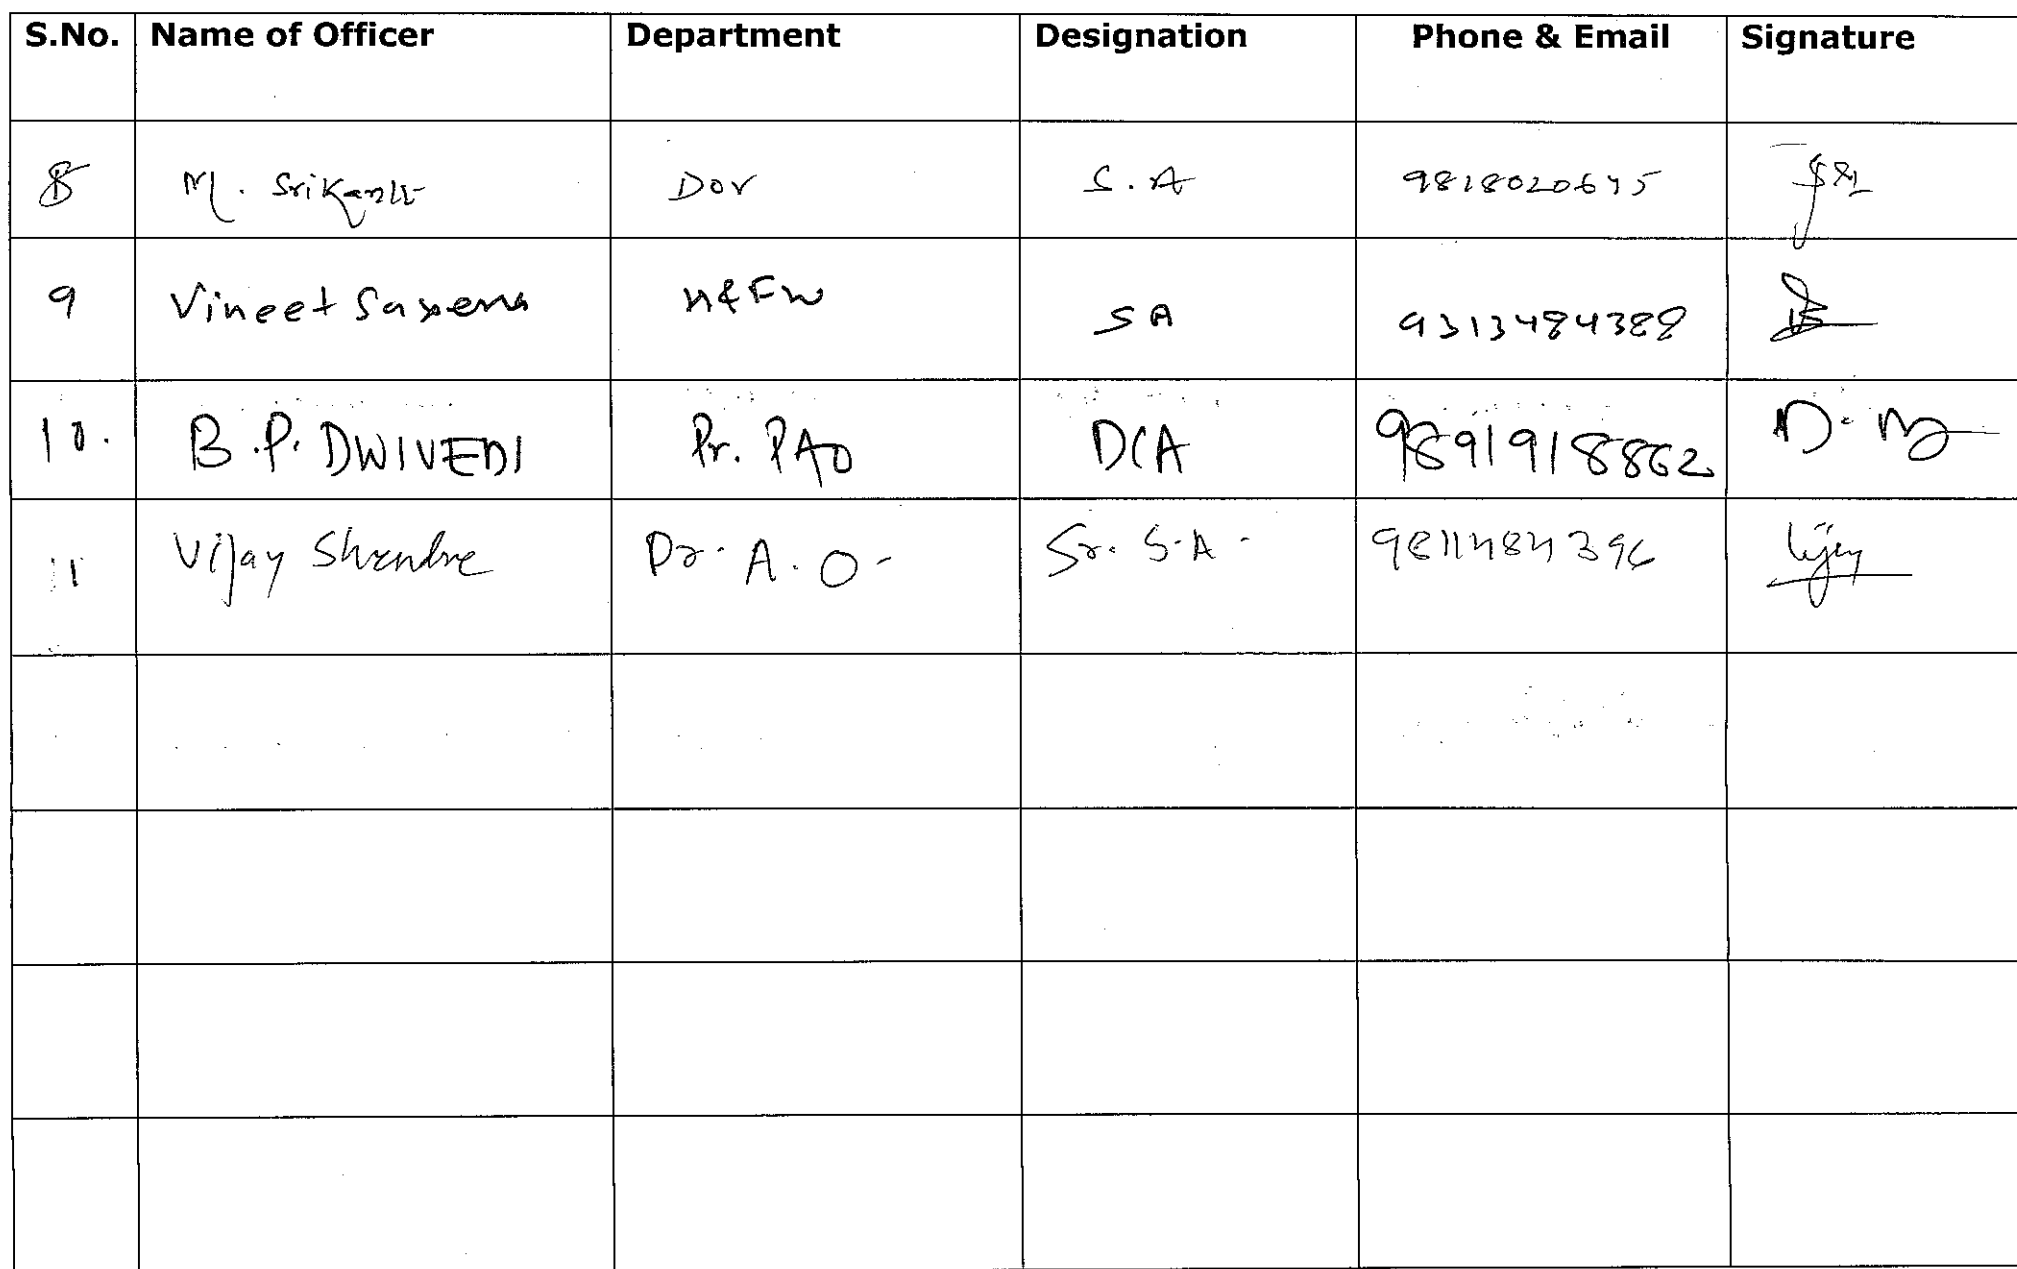 S.No. Name of Officer Department Designation Phone & Email Signature
8 M. Srikanth Dor S.A 9818020645
9 Vineet Saxena H&FW SA 9313484389
10. B.P. DWIVEDI Pr. PAO DCA 9891918862
11 Vijay Pr. A.O. Sr. S.A. 9811484396 Vijay